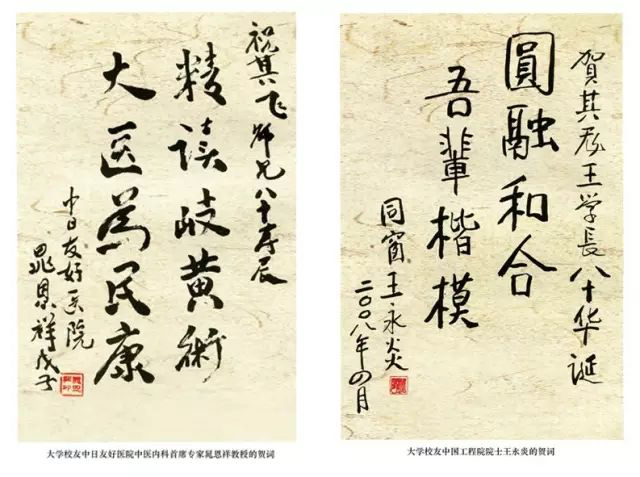 祝其飞师兄八十寿辰
精读歧黄術
大医為民康
中日友好医院
晁恩祥戊子
大学校友中日友好医院中医内科首席专家晁恩祥教授的贺词
賀其飛王学長八十华诞
圓融和合
吾輩楷模
同窗王永炎
二〇〇八年四月
大学校友中国工程院院士王永炎的贺词